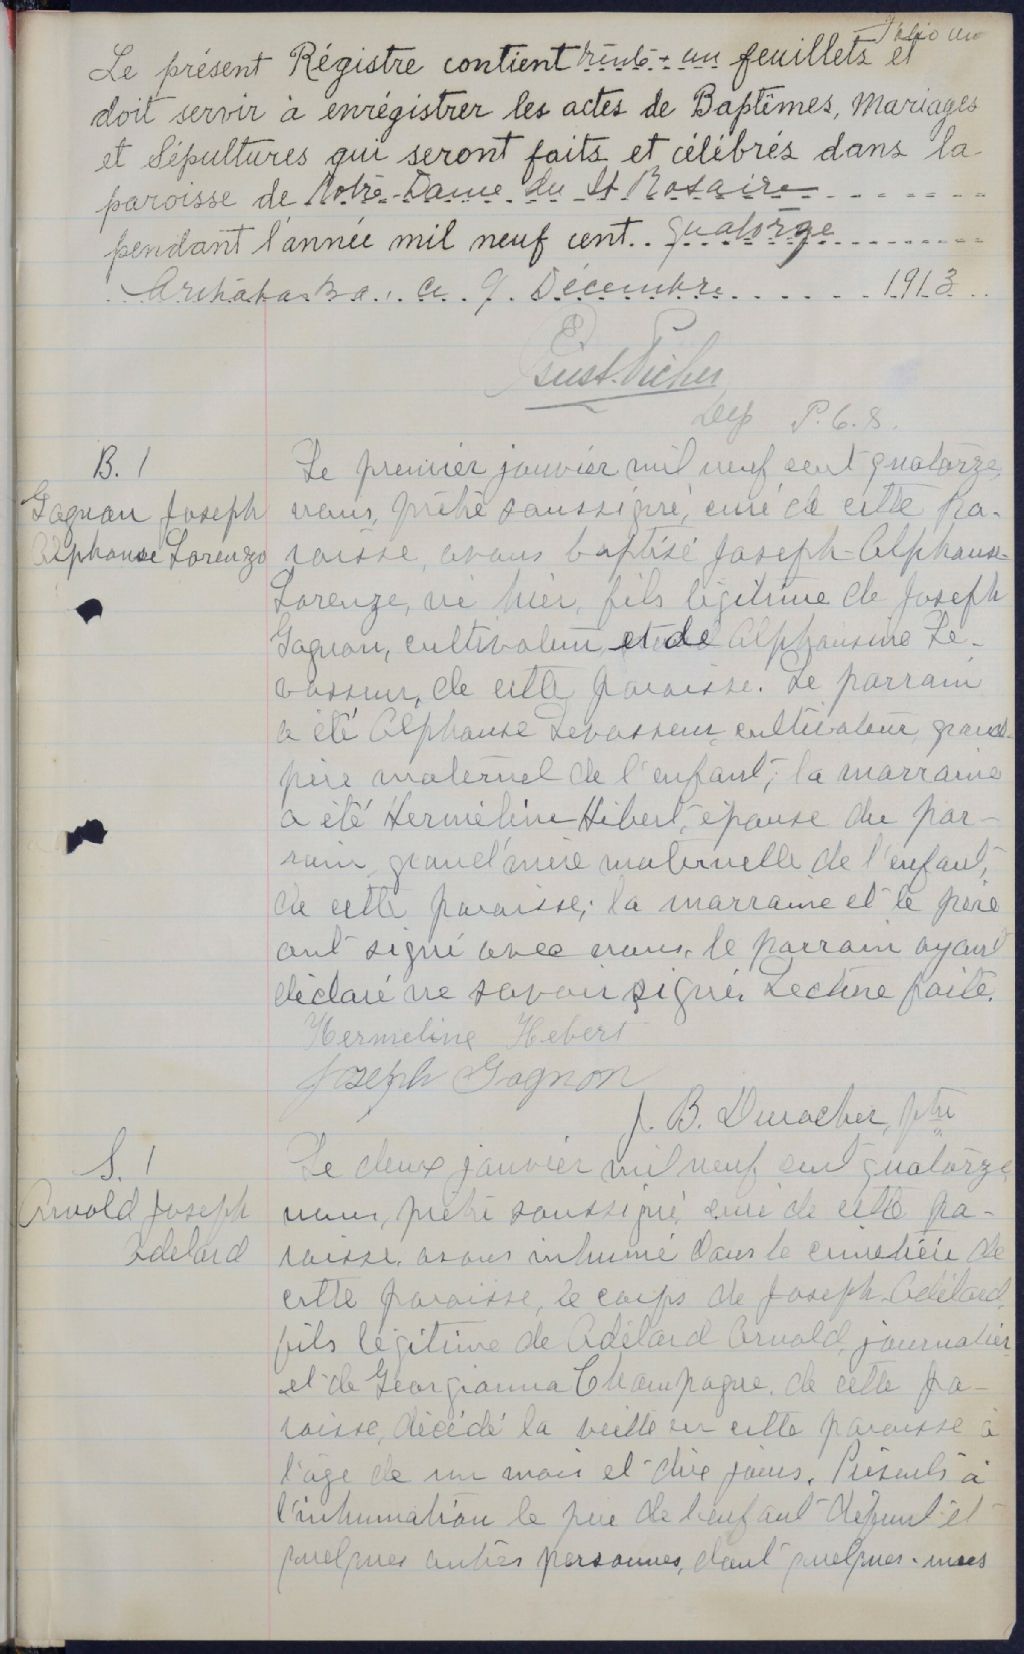 Folio un
Le présent Régistre contient trente-un feuillets et
doit servir à enrégistrer les actes de Baptêmes, Mariages
et Sépultures qui seront faits et célébrés dans la
paroisse de Notre-Dame du St Rosaire
pendant l'année mil neuf cent quatorze
Arthabaska, ce 9 Décembre 1913
Dep P.C.S.
B. 1
Gagnon Joseph
Alphonse Lorenzo
Le premier janvier mil neuf cent quatorze,
nous, prêtre soussigné, curé de cette pa-
roisse, avons baptisé Joseph-Alphonse-
Lorenzo, né hier, fils légitime de Joseph
Gagnon, cultivateur et de Alphonsine Le-
vasseur, de cette paroisse. Le parrain
a été Alphonse Levasseur, cultivateur, grand-
père maternel de l'enfant; la marraine
a été Herméline Hébert, épouse du par-
rain, grand'mère maternelle de l'enfant,
de cette paroisse; la marraine et le père
ont signé avec nous, le parrain ayant
déclaré ne savoir signer. Lecture faite.
Hermeline Hebert
Joseph Gagnon
J. B. Durocher, ptre
S. 1
Arnold Joseph
Adelard
Le deux janvier mil neuf cent quatorze,
nous, prêtre soussigné, curé de cette pa-
roisse, avons inhumé dans le cimetière de
cette paroisse, le corps de Joseph-Adélard,
fils légitime de Adélard Arnold, journalier
et de Georgianna Champagne, de cette pa-
roisse, décédé la veille en cette paroisse à
l'âge de un mois et dix jours. Présents à
l'inhumation le père de l'enfant défunt et
quelques autres personnes, dont quelques-unes